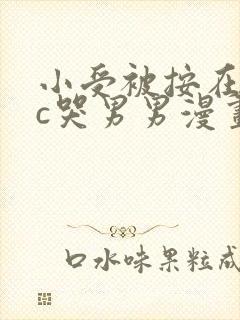 小受被按在
c哭男男漫畫
口水味果粒成